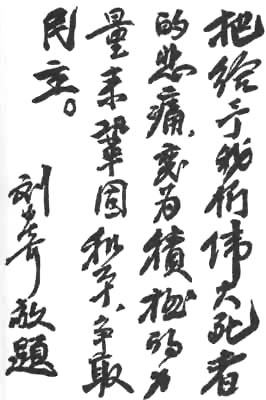 把给予我们伟大死者
的悲痛，变为積极的力
量来鞏固和平、争取
民主。
刘少奇敬題